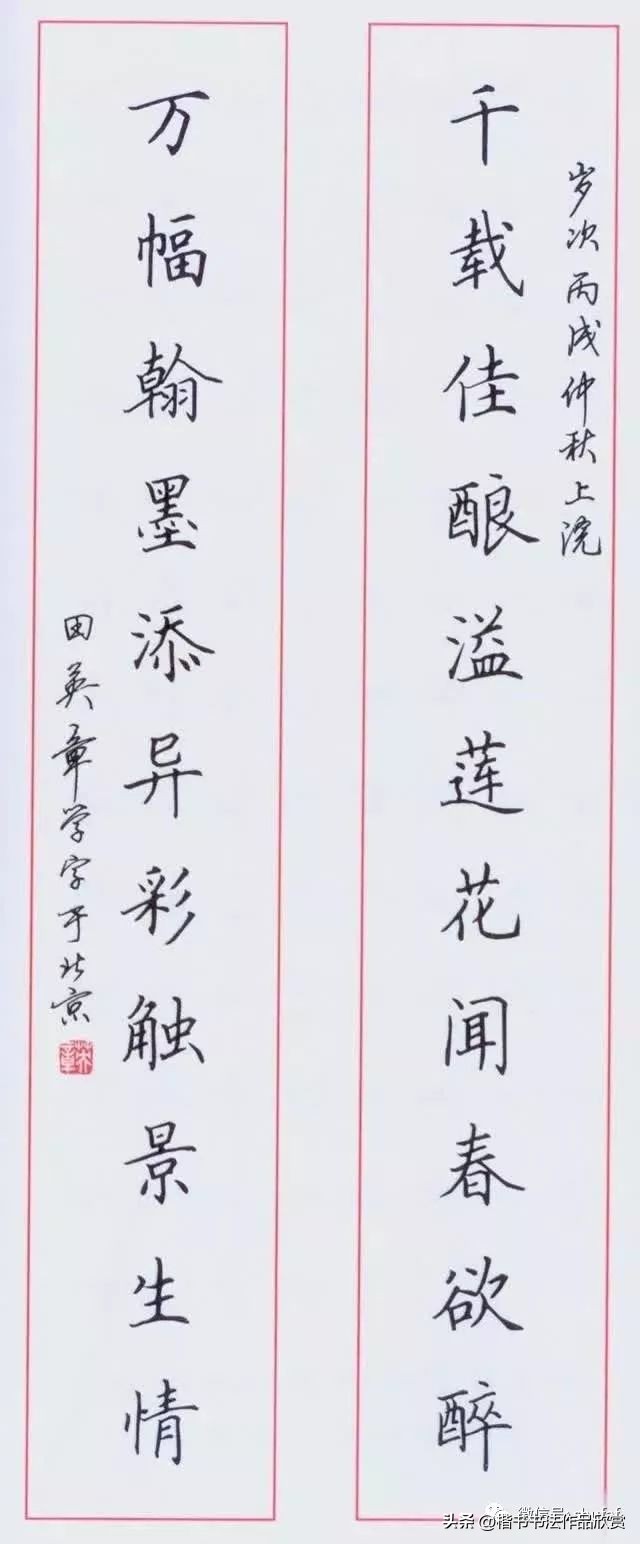 岁次丙戌仲秋上浣
千载佳酿溢莲花闻春欲醉
万幅翰墨添异彩触景生情
田英章学字于北京
英章
头条@楷书书法作品欣赏